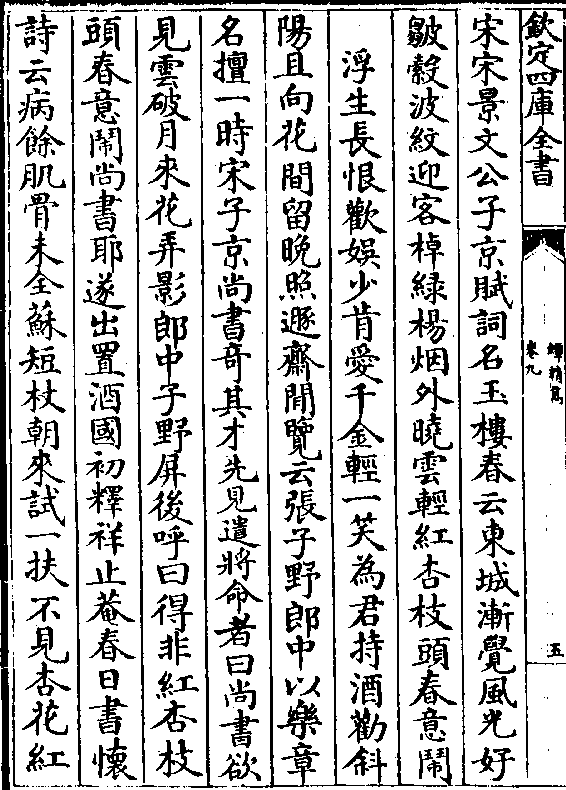 欽定四庫全書
蟫精雋
卷九
五
宋宋景文公子京賦詞名玉樓春云東城漸覺風光好
皺縠波紋迎客棹綠楊烟外曉雲輕紅杏枝頭春意鬧
浮生長恨歡娛少肯愛千金輕一笑為君持酒勸斜
陽且向花間留晚照遯齋閒覽云張子野郎中以樂章
名擅一時宋子京尚書奇其才先見遣將命者曰尚書欲
見雲破月來花弄影郎中子野屏後呼曰得非紅杏枝
頭春意鬧尚書耶遂出置酒國初釋祥止菴春日書懷
詩云病餘肌骨未全蘇短杖朝來試一扶不見杏花紅